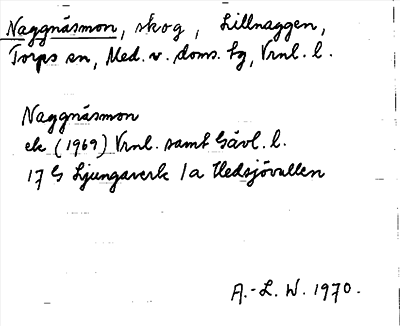 Naggnäsmon, skog, Lillnaggen,
Torps sn, Med. v. doms. hg, Vrnl. l.
Naggnäsmon
ek (1969) Vrnl. samt Gävl. l.
17 G Ljungaverk 1a Hedsjövallen
A.-L. W. 1970.